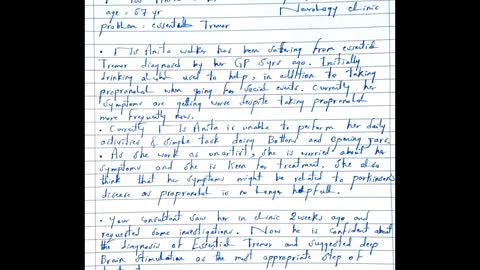 age = 67 yr Neurology clinic
problem = essential Tremor
Anita walker has been suffering from essential
Tremor diagnosed by her GP 5yrs ago. Initially
drinking used to help, in addition to taking
propranolol when going for social events. Currently her
symptoms are getting worse despite taking propranolol
more frequently now.
• Anita is unable to perform her daily
activities & simple task doing Bottons and opening jars.
• As she work as an artist, she is worried about her
symptoms and she is keen for treatment. She also
think that her symptoms might be related to parkinson's
disease as propranolol is no longer helpfull.
• Your consultant saw her in clinic 2 weeks ago and
requested some investigations. Now he is confident about
the diagnosis of Essential Tremor and suggested deep
Brain stimulation as the most appropriate step of